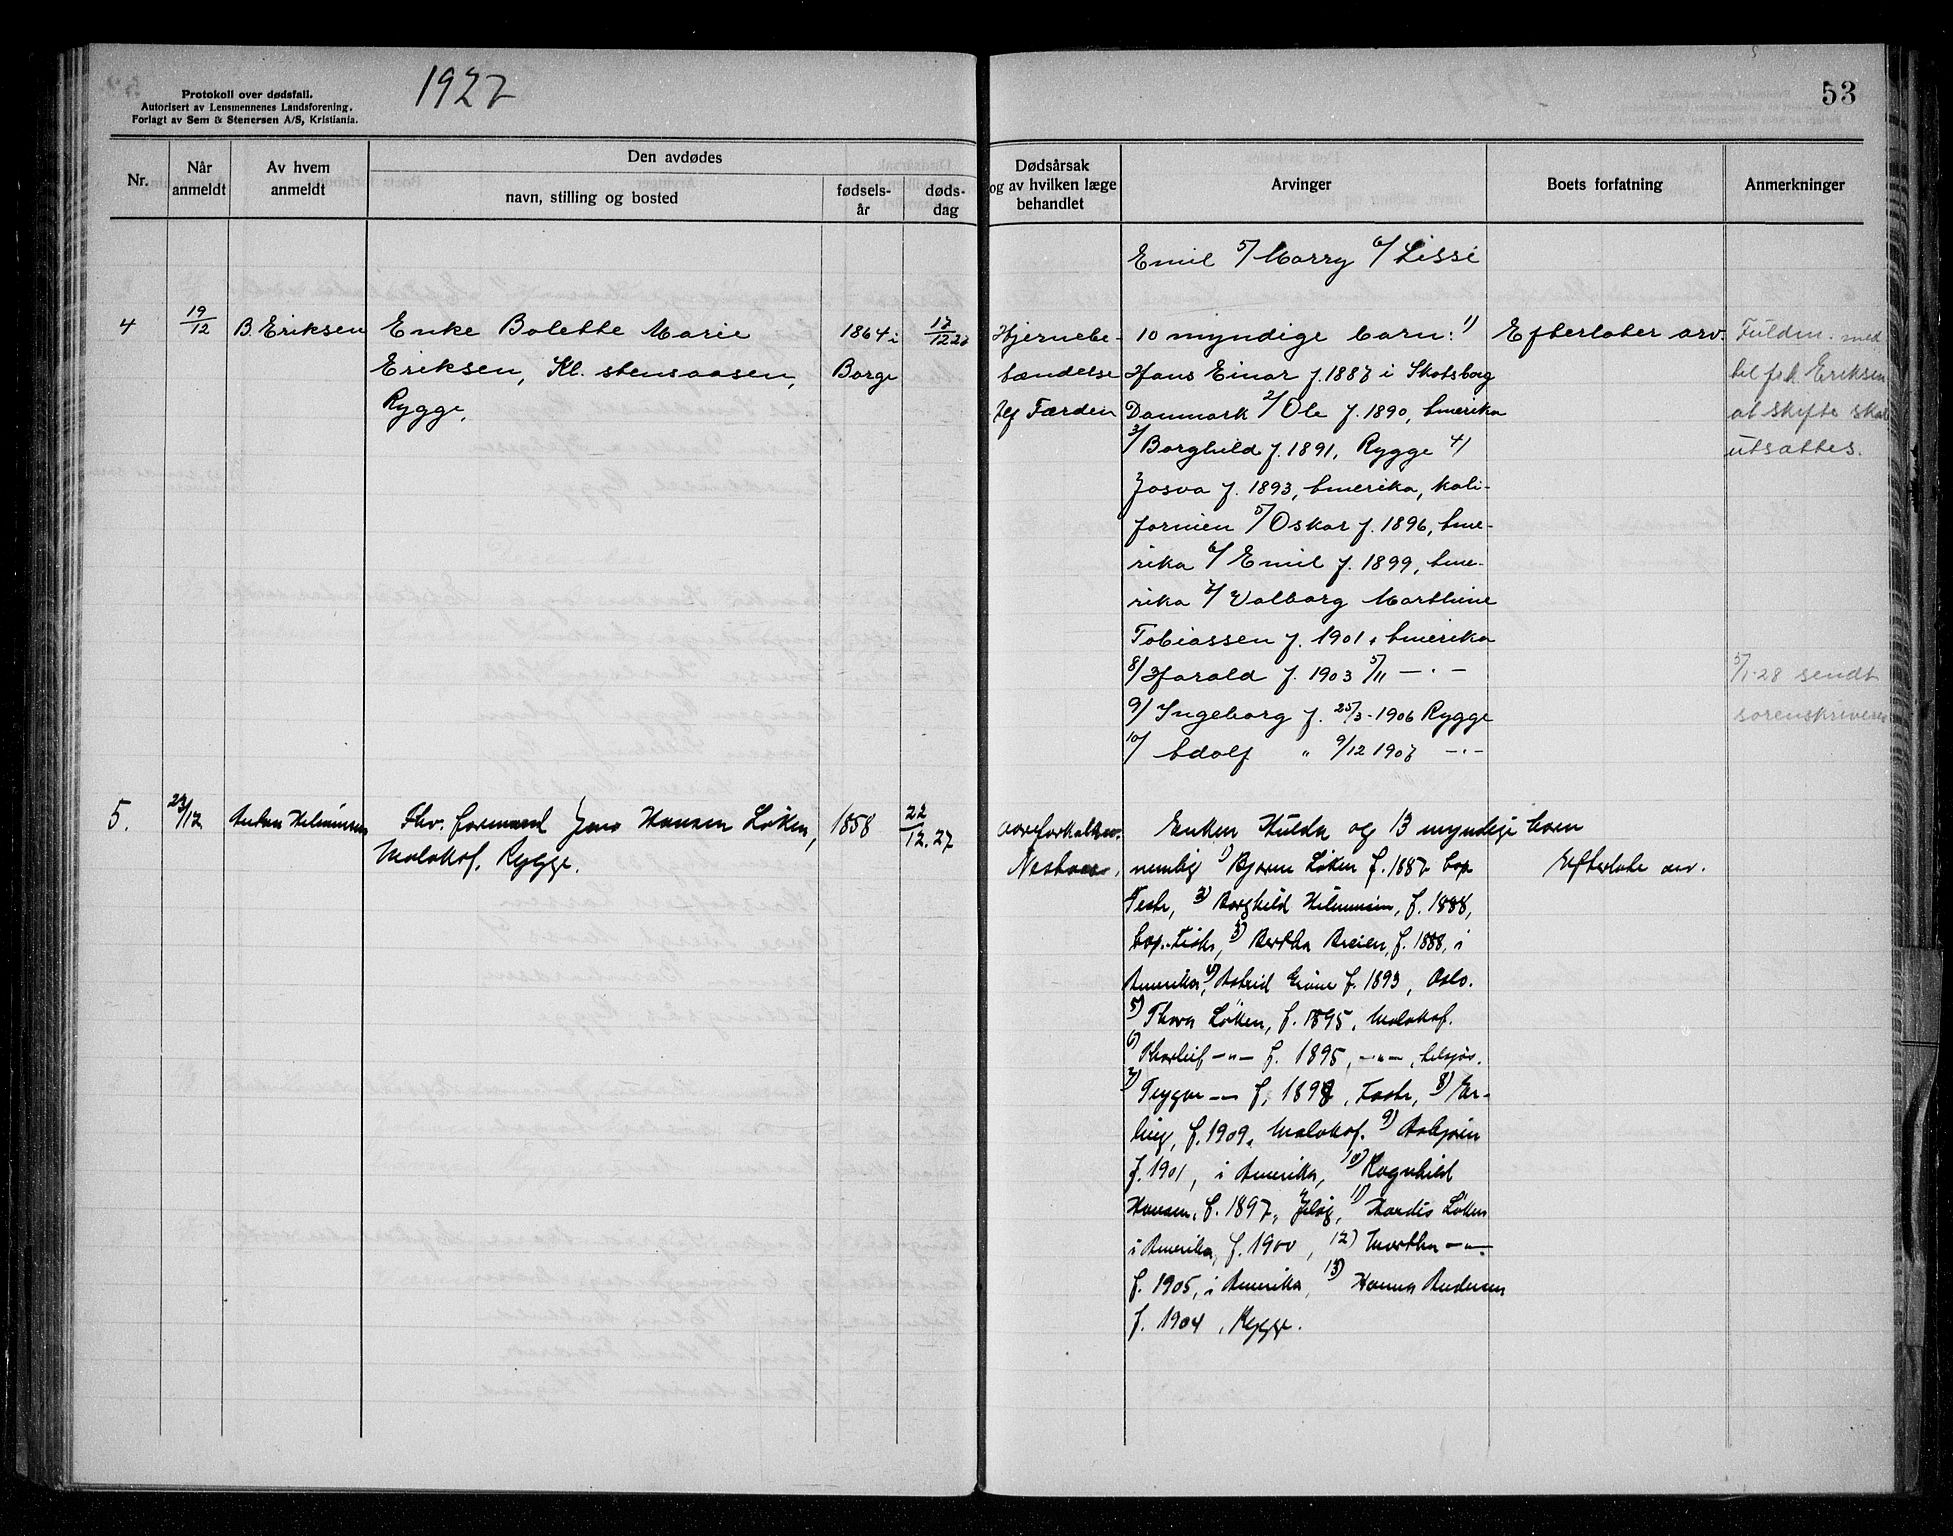 Protokoll over dødsfall.
Autorisert av Lensmennenes Landsforening.
Forlagt av Sem & Stenersen A/S, Kristiania.
1927
53
Nr.
Når anmeldt
Av hvem anmeldt
Den avdødes
navn, stilling og bosted
fødsels-år
døds-dag
Dødsårsak og av hvilken læge behandlet
Arvinger
Boets forfatning
Anmerkninger
Emil 5/ Marry 6/ Lissi
4
19/12
B. Eriksen
Enke Bolette Marie
Eriksen, Kl. stensaasen,
Rygge.
1864 i
Borge
17/12 27
Hjernebe-
tændelse
Færden
10 myndige barn: 1)
Hans Einar f. 1887 i Skotsborg
Danmark 2/ Ole f. 1890, Amerika
3/ Borghild f. 1891, Rygge 4/
Josva f. 1893, Amerika, Kali-
fornien 5/ Oskar f. 1896, Ame-
rika 6/ Emil f. 1899, Ame-
rika 7/ Valborg Marthine
Tobiassen f. 1901, Amerika
8/ Harald f. 1903 5/11 — " —
9/ Ingeborg f. 25/3-1906 Rygge
10/ Adolf " 9/12 1907 — " —
Efterlater arv.
Fuldm. med
til f.k. Eriksen
at skifte skal
utsattes.
5/1-28 sendt
sorenskriveren
5.
23/12
Anton Hilmersen
Fhv. formand Jens Hansen Løken,
Malakof, Rygge.
1858
22/12.27
aareforkalkn.
Nestaas.
Enken Hulda og 13 myndige barn
nemlig 1) Bjarne Løken f. 1887 bop
Feste, 2) Borghild Hilmersen, f. 1888,
bop. Feste, 3) Bertha Breien, f. 1888, i
Amerika, 4) Astrid f. 1893, Oslo.
5) Thora Løken, f. 1895, Malakof.
6) Thorleif —"— f. 1895, —"—, tilsjøs.
7) Trygve —"— f. 1898, Feste, 8) Er-
ling, f. 1909, Malakof. 9) Asbjørn
f. 1901, i Amerika, 10) Ragnhild
Hansen, f. 1897, Jeløy, 11) Hardis Løken
i Amerika, f. 1900, 12) Martha —"—
f. 1905, i Amerika, 13) Hanna Andersen
f. 1904, Rygge.
Efterlate arv.